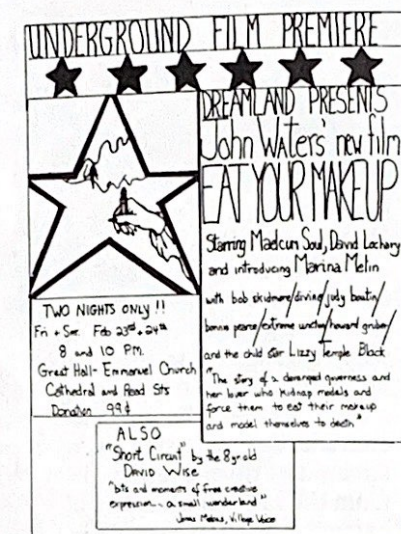 UNDERGROUND FILM PREMIERE
DREAMLAND PRESENTS
John Waters' new film
EAT YOUR MAKEUP
Starring Maelcum Soul, David Lochary
and introducing Marina Melin
with bob skidmore/divine/judy boutin/
bonnie pearce/extreme unction/howard gruber/
and the child star Lizzy Temple Black
"The story of a deranged governess and
her lover who kidnap models and
force them to eat their makeup
and model themselves to death"
TWO NIGHTS ONLY!!
Fri + Sat. Feb 23rd + 24th
8 and 10 P.M.
Great Hall- Emmanuel Church
Cathedral and Read Sts
Donation 99¢
ALSO
"Short Circuit" by the 8 yr old
DAVID WISE
"bits and moments of free creative
expression... a small wonderland"
Jonas Mekas, Village Voice